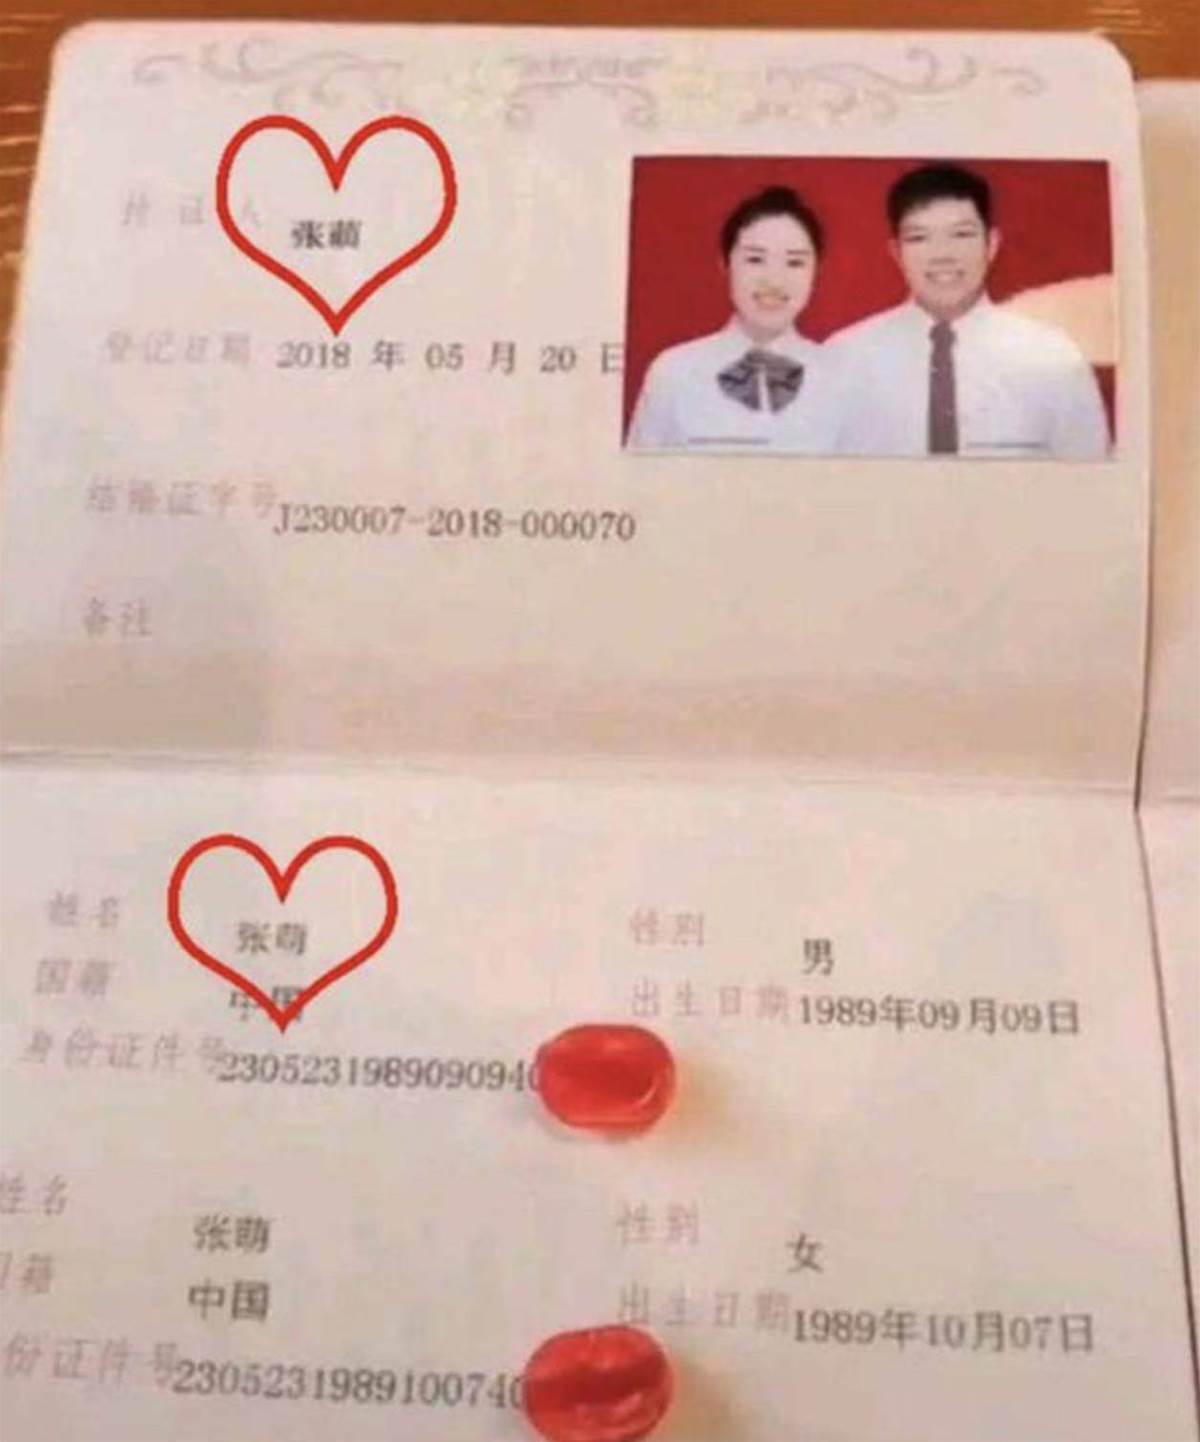 持证人 张萌
登记日期 2018 年 05 月 20 日
结婚证字号 J230007-2018-000070
备注
姓名 张萌 性别 男
国籍 中国 出生日期 1989年09月09日
身份证件号 2305231989090940
姓名 张萌 性别 女
国籍 中国 出生日期 1989年10月07日
份证件号 2305231989100740